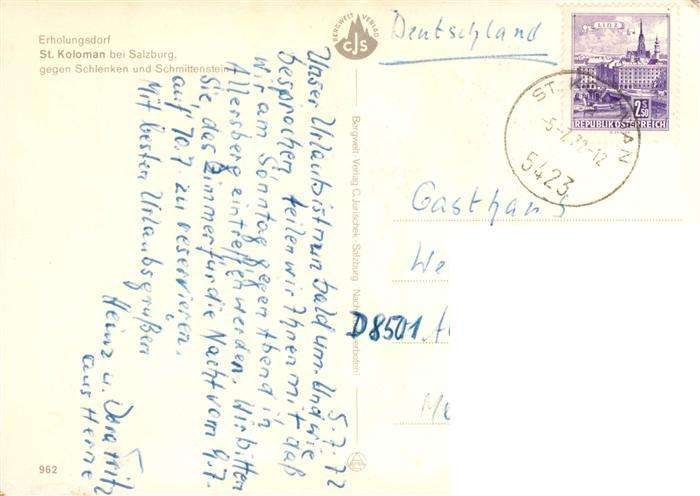 Erholungsdorf
St. Koloman bei Salzburg,
gegen Schlenken und Schmittenstein
BERGWELT VERLAG
CJS
Deutschland
LINZ
2.S50
REPUBLIK ÖSTERREICH
ST. KOLOMAN
-5.7.72-12
5423
5.7.72
Unser Urlaub ist nun bald um. Und wie
besprochen, teilen wir Ihnen mit, daß
wir am Sonntag gegen Abend in
Allersberg eintreffen werden. Wir bitten
Sie das Zimmer für die Nacht vom 9.7.
auf 10.7. zu reservieren.
Mit besten Urlaubsgrüßen
Heinz u. Dora Fritz
aus Herne
Bergwelt Verlag C. Jurischek, Salzburg. Nachdruck verboten!
Gasthaus
We
D8501
Me
962